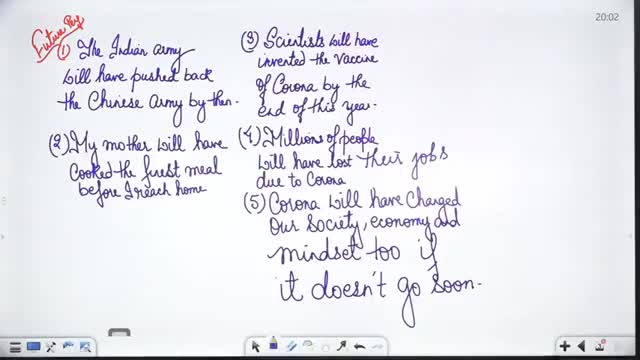 20:02
Future Per
(1) The Indian army
will have pushed back
the Chinese Army by then.
(2) My mother will have
cooked the finest meal
before I reach home
(3) Scientists will have
invented the vaccine
of Corona by the
end of this year.
(4) Millions of people
will have lost their jobs
due to Corona
(5) Corona will have changed
our society, economy and
mindset too if
it doesn't go soon.